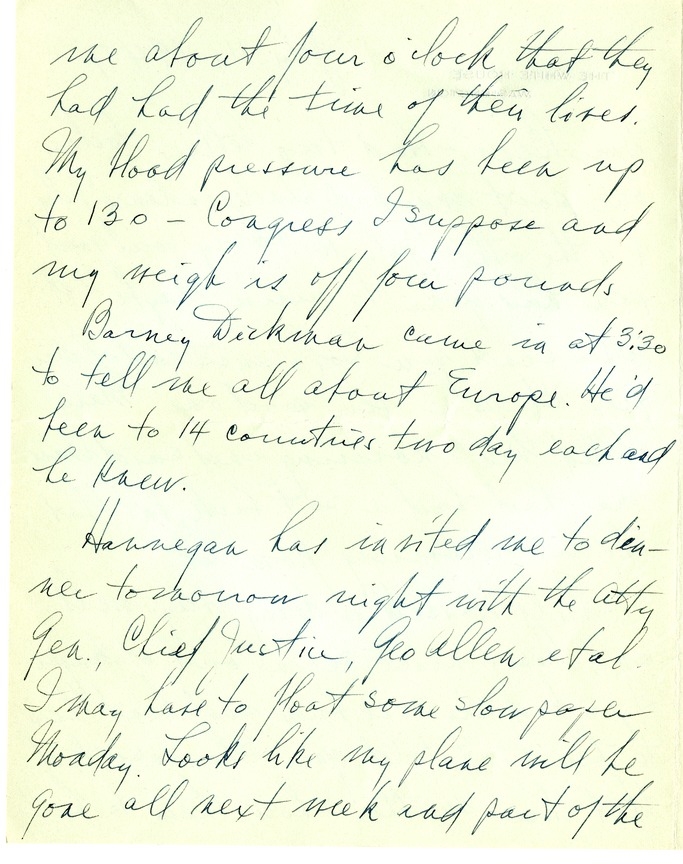 me about four o'clock that they
had had the time of their lives.
My blood pressure has been up
to 130 – Congress I suppose and
my weigh is off four pounds
Barney Dickman came in at 3:30
to tell me all about Europe. He'd
been to 14 countries two day each and
he knew.
Hannegan has invited me to din-
ner tomorrow night with the Atty
Gen., Chief Justice, Geo Allen et al.
I may have to float some slow paper
Monday. Looks like my plane will be
gone all next week and part of the
THE WHITE HOUSE
WASHINGTON